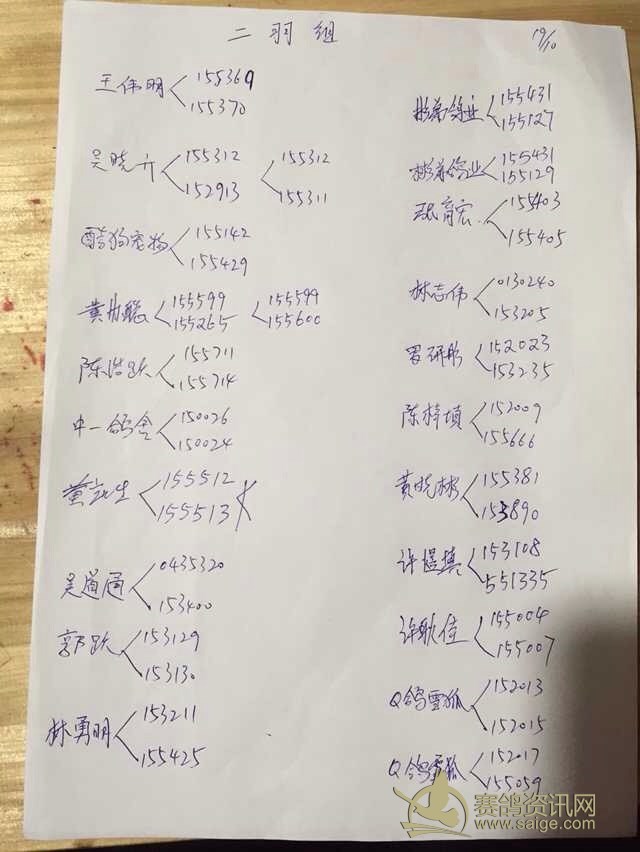 二羽组
19/10
王伟明 155369
155370
吴晓 155312 155312
152913 155311
酷狗宠物 155142
155429
黄 155599 155599
155265 155600
陈浩跃 155711
155714
中一鸽舍 150026
150024
黄 生 155512
155513
吴道通 0435320
153400
郭跃 153129
153130
林勇明 153211
155425
彬弟鸽业 155431
155127
彬弟鸽业 155431
155129
育宏 155403
155405
林志伟 0130240
153205
罗研彤 152023
153235
陈梓填 152009
155666
黄晓彬 155381
153890
许 填 153108
551335
许耿佳 155004
155007
Q鸽雪狐 152013
152015
Q鸽雪狐 152017
155059
赛鸽资讯网
www.saige.com